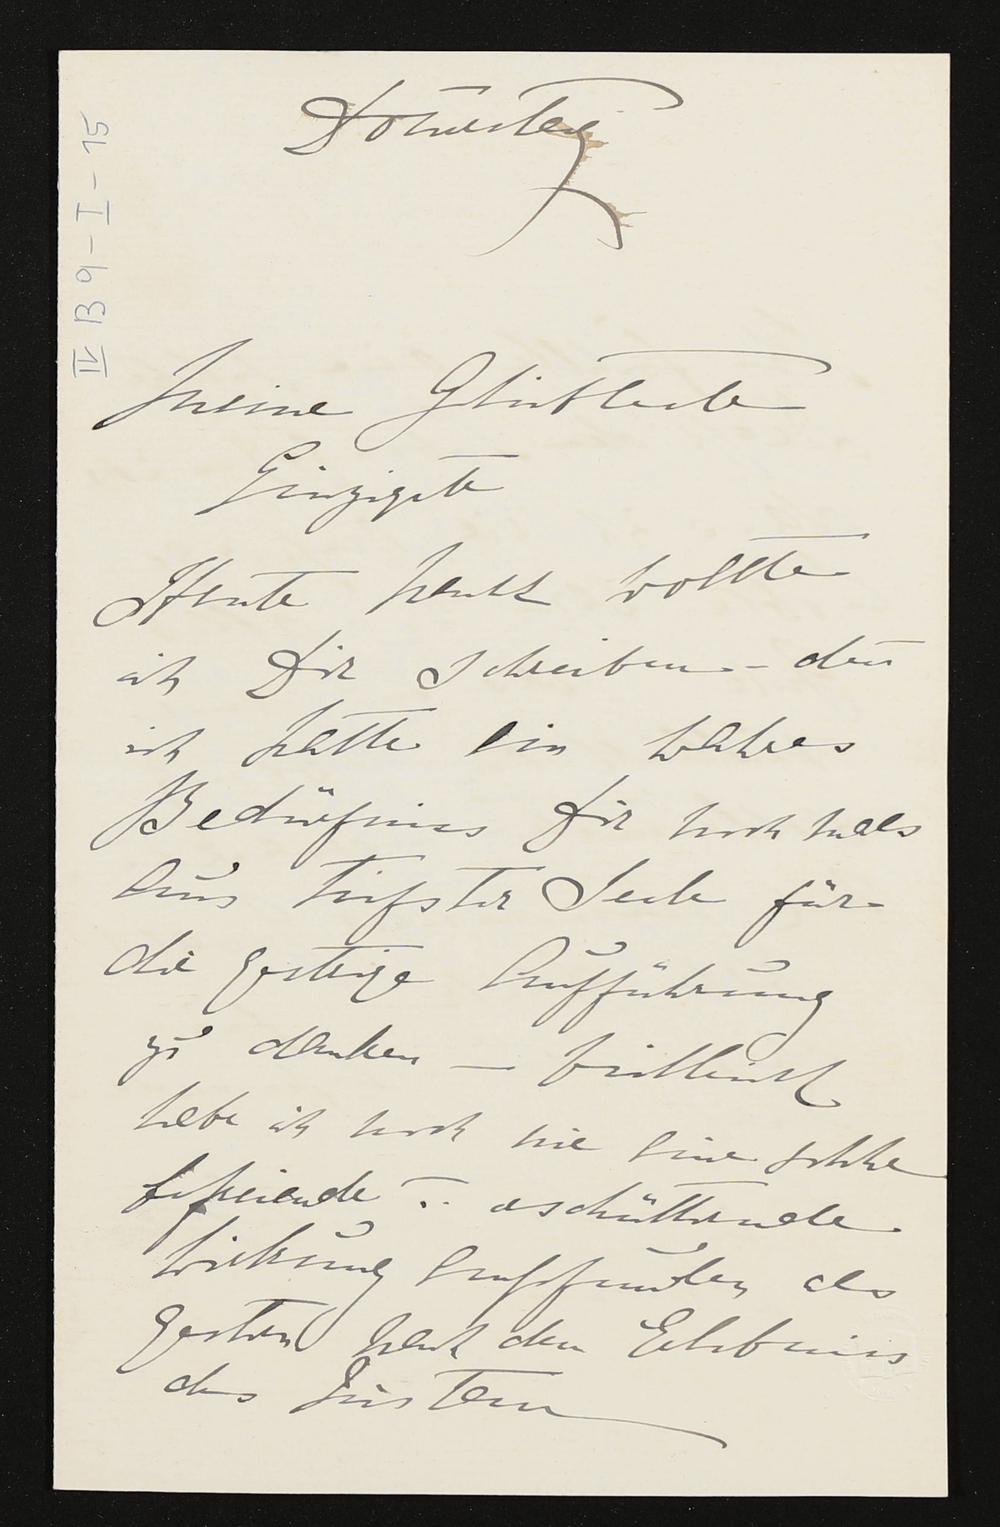 Donnerstag
IV B 9 – I – 15
Meine Glückliche
Einzigste
Heute Nacht wollte
ich Dir schreiben – den̄
ich hatte ein wahres
Bedürfniss Dir nochmals
aus tiefster Seele für
die gestrige Aufführung
zu danken – vielleicht
habe ich noch nie eine solche
befreiende erschütternde
Wirkung empfunden als
gestern nach dem Erlebniss
des